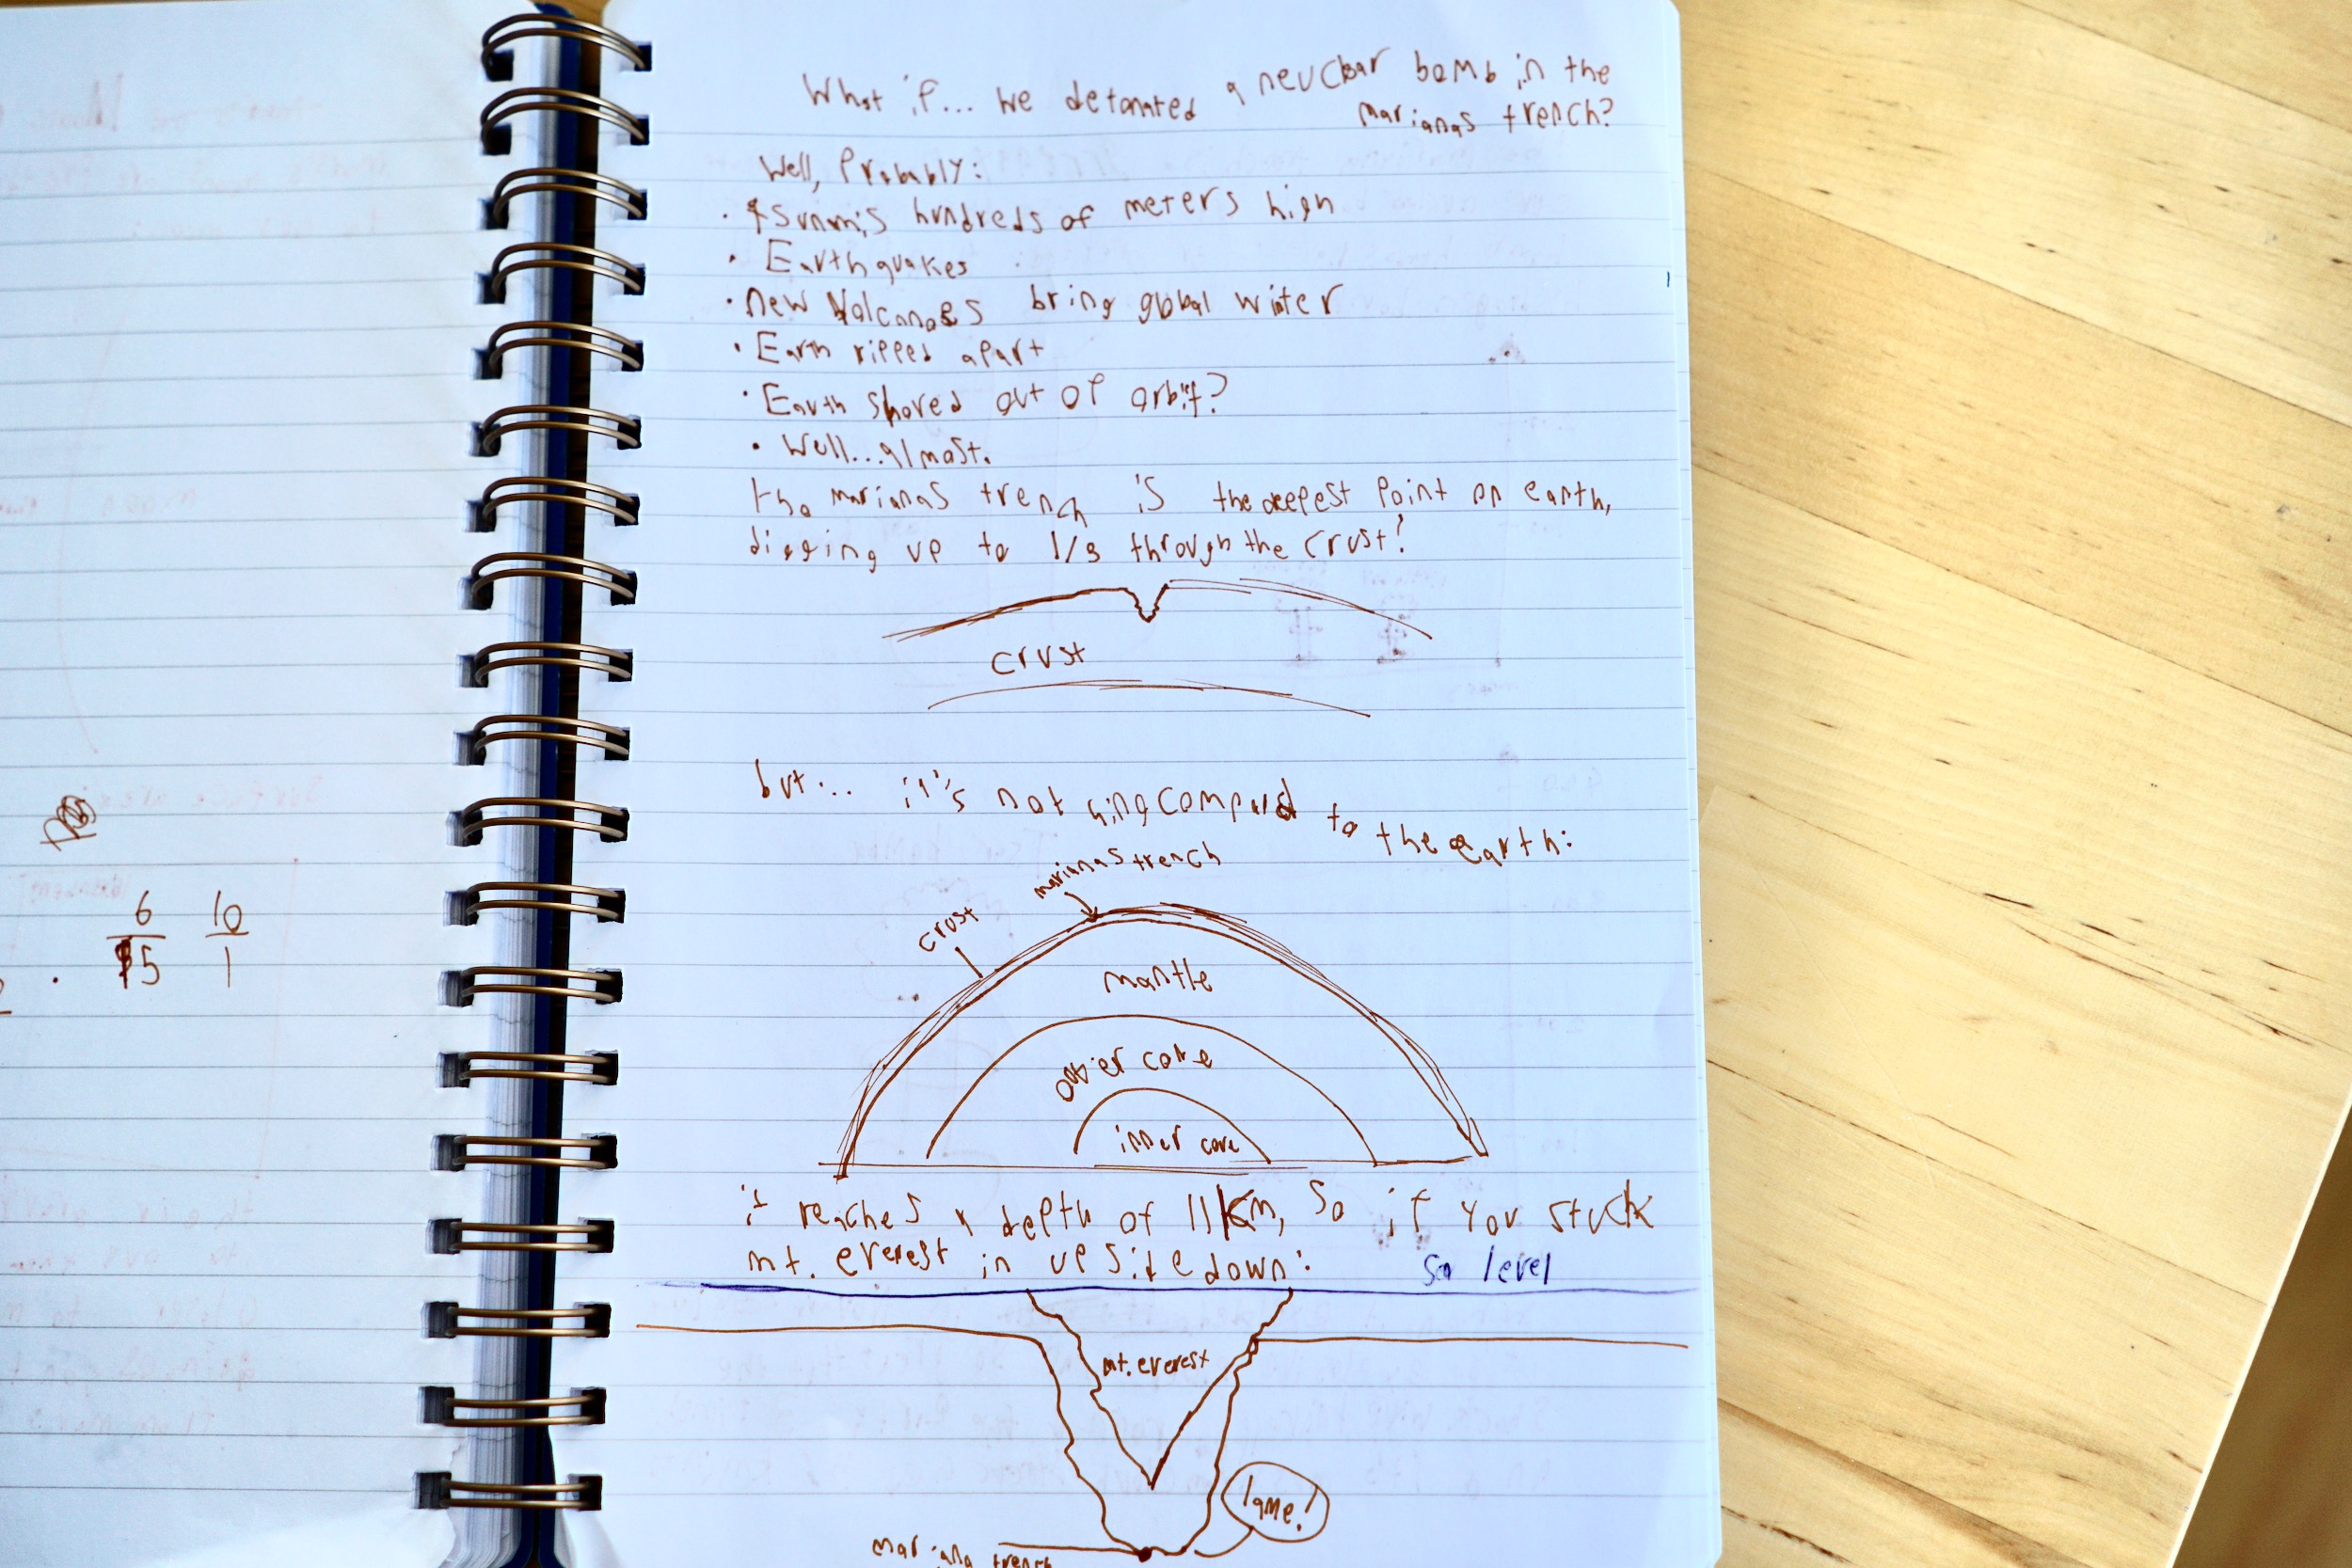 6 10
15 1
What if... we detonated a neuclear bomb in the
marianas trench?
Well, Probably:
• tsunamis hundreds of meters high
• Earthquakes
• New Volcanoes bring global winter
• Earth ripped apart
• Earth shoved out of orbit?
• Well...almost.
the marianas trench is the deepest Point on earth,
digging up to 1/3 through the crust!
crust
but... it's nothing compared to the earth:
marianas trench
crust
mantle
outer core
inner core
it reaches a depth of 11Km, So if you stuck
mt. everest in upside down:
Sea level
mt. everest
lame!
mariana trench